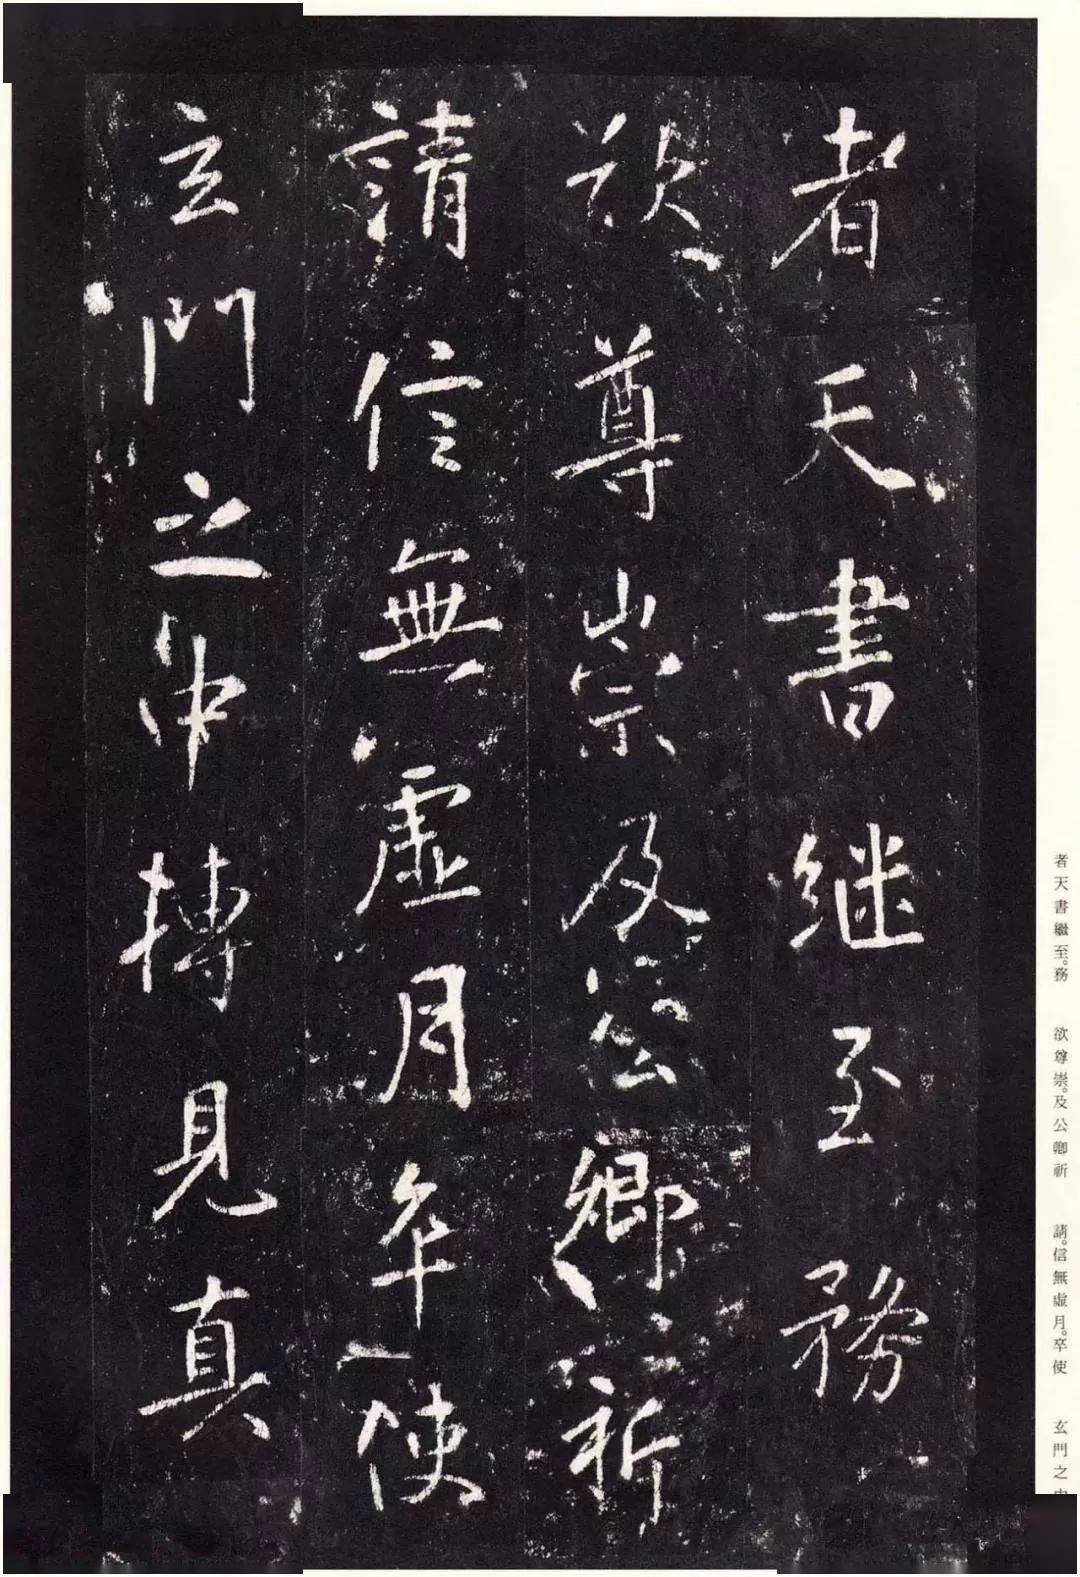 者天書継至務
欲尊崇及公卿祈
請信無虚月卒使
玄門之中摶見真
者天書繼至。務　欲尊崇。及公卿祈　請。信無虛月。卒使　玄門之中